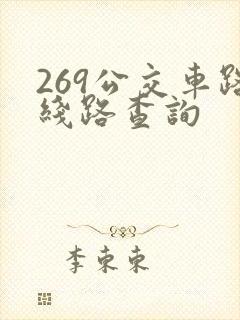 269公交車路
綫路查詢
李東東